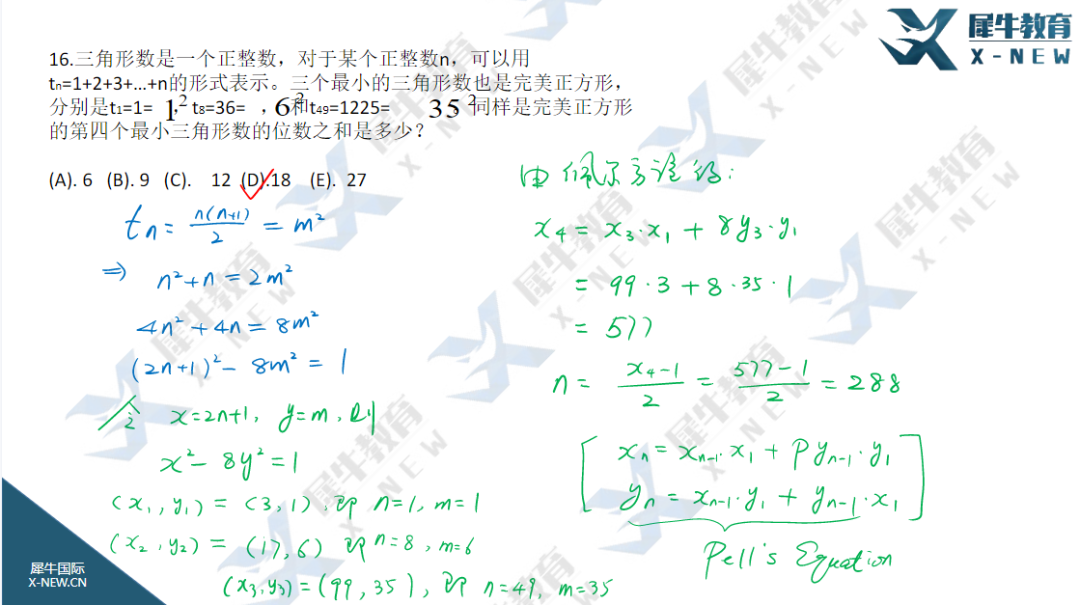 犀牛教育
X-NEW
16.三角形数是一个正整数，对于某个正整数n，可以用
tn=1+2+3+...+n的形式表示。三个最小的三角形数也是完美正方形，
分别是t₁=1= 1²，t₈=36= ，6²和t₄₉=1225= 35²同样是完美正方形
的第四个最小三角形数的位数之和是多少？
(A). 6 (B). 9 (C). 12 (D).18 (E). 27
tn = n(n+1)/2 = m²
⇒ n²+n = 2m²
4n²+4n = 8m²
(2n+1)² - 8m² = 1
令 x=2n+1, y=m, 则
x² - 8y² = 1
(x₁, y₁) = (3, 1), 即 n=1, m=1
(x₂, y₂) = (17, 6) 即 n=8, m=6
(x₃, y₃) = (99, 35), 即 n=49, m=35
由佩尔方程得:
x₄ = x₃·x₁ + 8y₃·y₁
= 99·3 + 8·35·1
= 577
n = (x₄-1)/2 = (577-1)/2 = 288
xₙ = xₙ₋₁·x₁ + Pyₙ₋₁·y₁
yₙ = xₙ₋₁·y₁ + yₙ₋₁·x₁
Pell's Equation
犀牛国际
X-NEW.CN